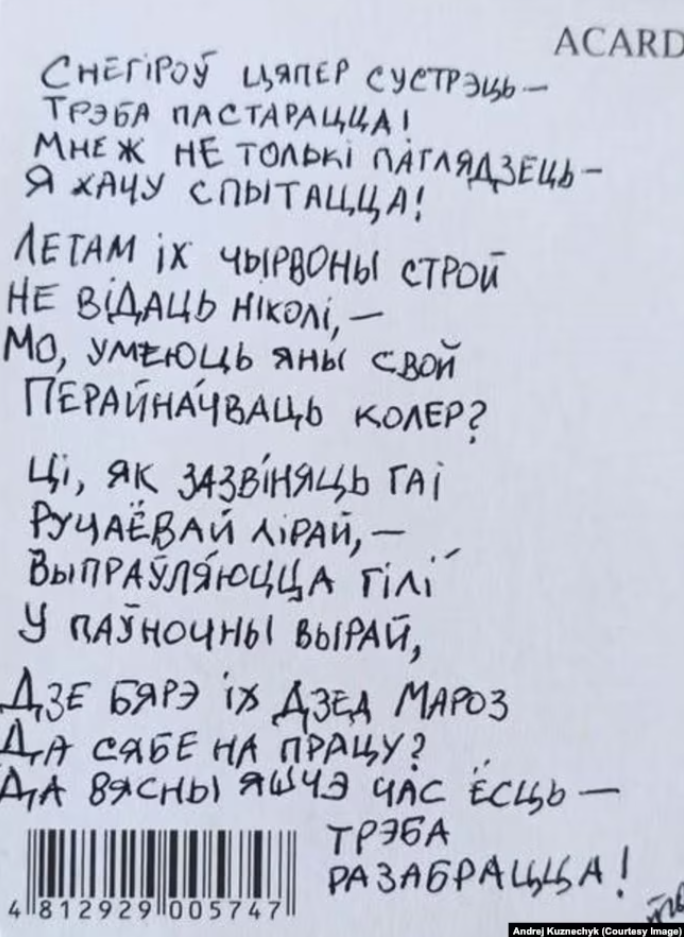 ACARD
СНЕГІРОЎ ЦЯПЕР СУСТРЭЦЬ –
ТРЭБА ПАСТАРАЦЦА!
МНЕ Ж НЕ ТОЛЬКІ ПАГЛЯДЗЕЦЬ –
Я ХАЧУ СПЫТАЦЦА!
ЛЕТАМ ІХ ЧЫРВОНЫ СТРОЙ
НЕ ВІДАЦЬ НІКОЛІ, –
МО, УМЕЮЦЬ ЯНЫ СВОЙ
ПЕРАЙНА́ЧВАЦЬ КОЛЕР?
ЦІ, ЯК ЗАЗВІНЯЦЬ ГАІ
РУЧАЁВАЙ ЛІРАЙ, –
ВЫПРАЎЛЯ́ЮЦЦА ГІЛІ́
У ПАЎНОЧНЫ ВЫРАЙ,
ДЗЕ БЯРЭ ІХ ДЗЕД МАРОЗ
ДА СЯБЕ НА ПРАЦУ?
ДА ВЯСНЫ ЯШЧЭ ЧАС ЁСЦЬ –
ТРЭБА
РАЗАБРАЦЦА!
4 812929 005747
Andrej Kuznechyk (Courtesy Image)